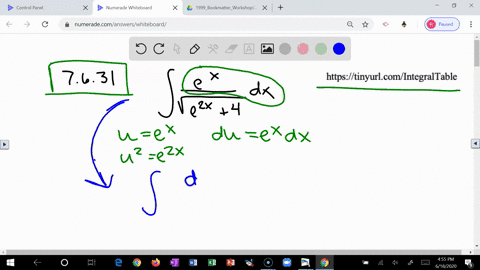 Control Panel
Numerade Whiteboard
1999_Bookmatter_Workshop
numerade.com/answers/whiteboard/
Paused
7.6.31
∫ e^x / √(e^{2x} + 4) dx
https://tinyurl.com/IntegralTable
u = e^x du = e^x dx
u² = e^{2x}
∫ d
4:55 PM
6/18/2020